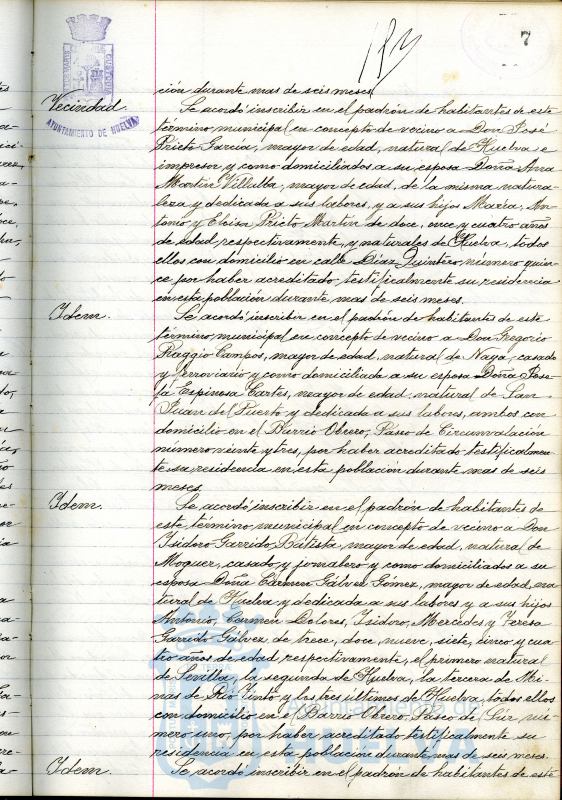 7
ción durante mas de seis meses.
Vecindad.
Se acordó inscribir en el padrón de habitantes de este
término municipal en concepto de vecino a Don José
AYUNTAMIENTO DE HUELVA
Prieto Garcia, mayor de edad, natural de Huelva e
impresor y como domiciliados a su esposa Doña Ana
Martin Villalba, mayor de edad, de la misma natura-
leza y dedicada a sus labores, y a sus hijos Maria, An-
tonio y Eloisa Prieto Martin de doce, once y cuatro años
de edad respectivamente, y naturales de Huelva, todos
ellos con domicilio en calle Diaz Quintero número quin-
ce por haber acreditado testificalmente su residencia
en esta población durante mas de seis meses.
Idem.
Se acordó inscribir en el padrón de habitantes de este
término municipal en concepto de vecino a Don Gregorio
Raggio Campos, mayor de edad, natural de casado
y ferroviario y como domiciliada a su esposa Doña Jose-
fa Espinosa Cartes, mayor de edad, natural de San
Juan del Puerto y dedicada a sus labores, ambos con
domicilio en el Barrio Obrero, Paseo de Circunvalación
número veinte y tres, por haber acreditado testificalmen-
te su residencia en esta población durante mas de seis
meses.
Idem.
Se acordó inscribir en el padrón de habitantes de
este término municipal en concepto de vecino a Don
Isidoro Garrido Batista, mayor de edad, natural de
Moguer, casado y jornalero y como domiciliados a su
esposa Doña Carmen Gálvez Gómez, mayor de edad, na-
tural de Huelva y dedicada a sus labores y a sus hijos
Antonio, Carmen Dolores, Isidoro, Mercedes y Teresa
Garrido Gálvez, de trece, doce, nueve, siete, cinco y cua-
tro años de edad, respectivamente, el primero natural
de Sevilla, la segunda de Huelva, la tercera de Mi-
nas de Rio Tinto y los tres últimos de Huelva, todos ellos
con domicilio en el Barrio Obrero, Paseo de Sur nú-
mero uno, por haber acreditado testificalmente su
residencia en esta población durante mas de seis meses.
Idem.
Se acordó inscribir en el padrón de habitantes de este
Ayuntamiento de
HUELVA